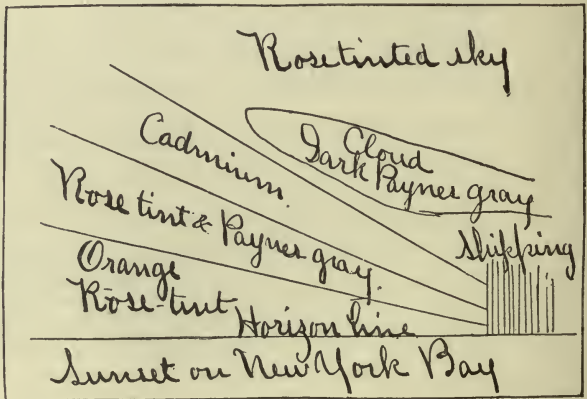 Rose tinted sky
Cadmium.
Cloud
Dark Paynes gray
Rose tint & Paynes gray.
Shipping
Orange
Rose-tint
Horizon line
Sunset on New York Bay